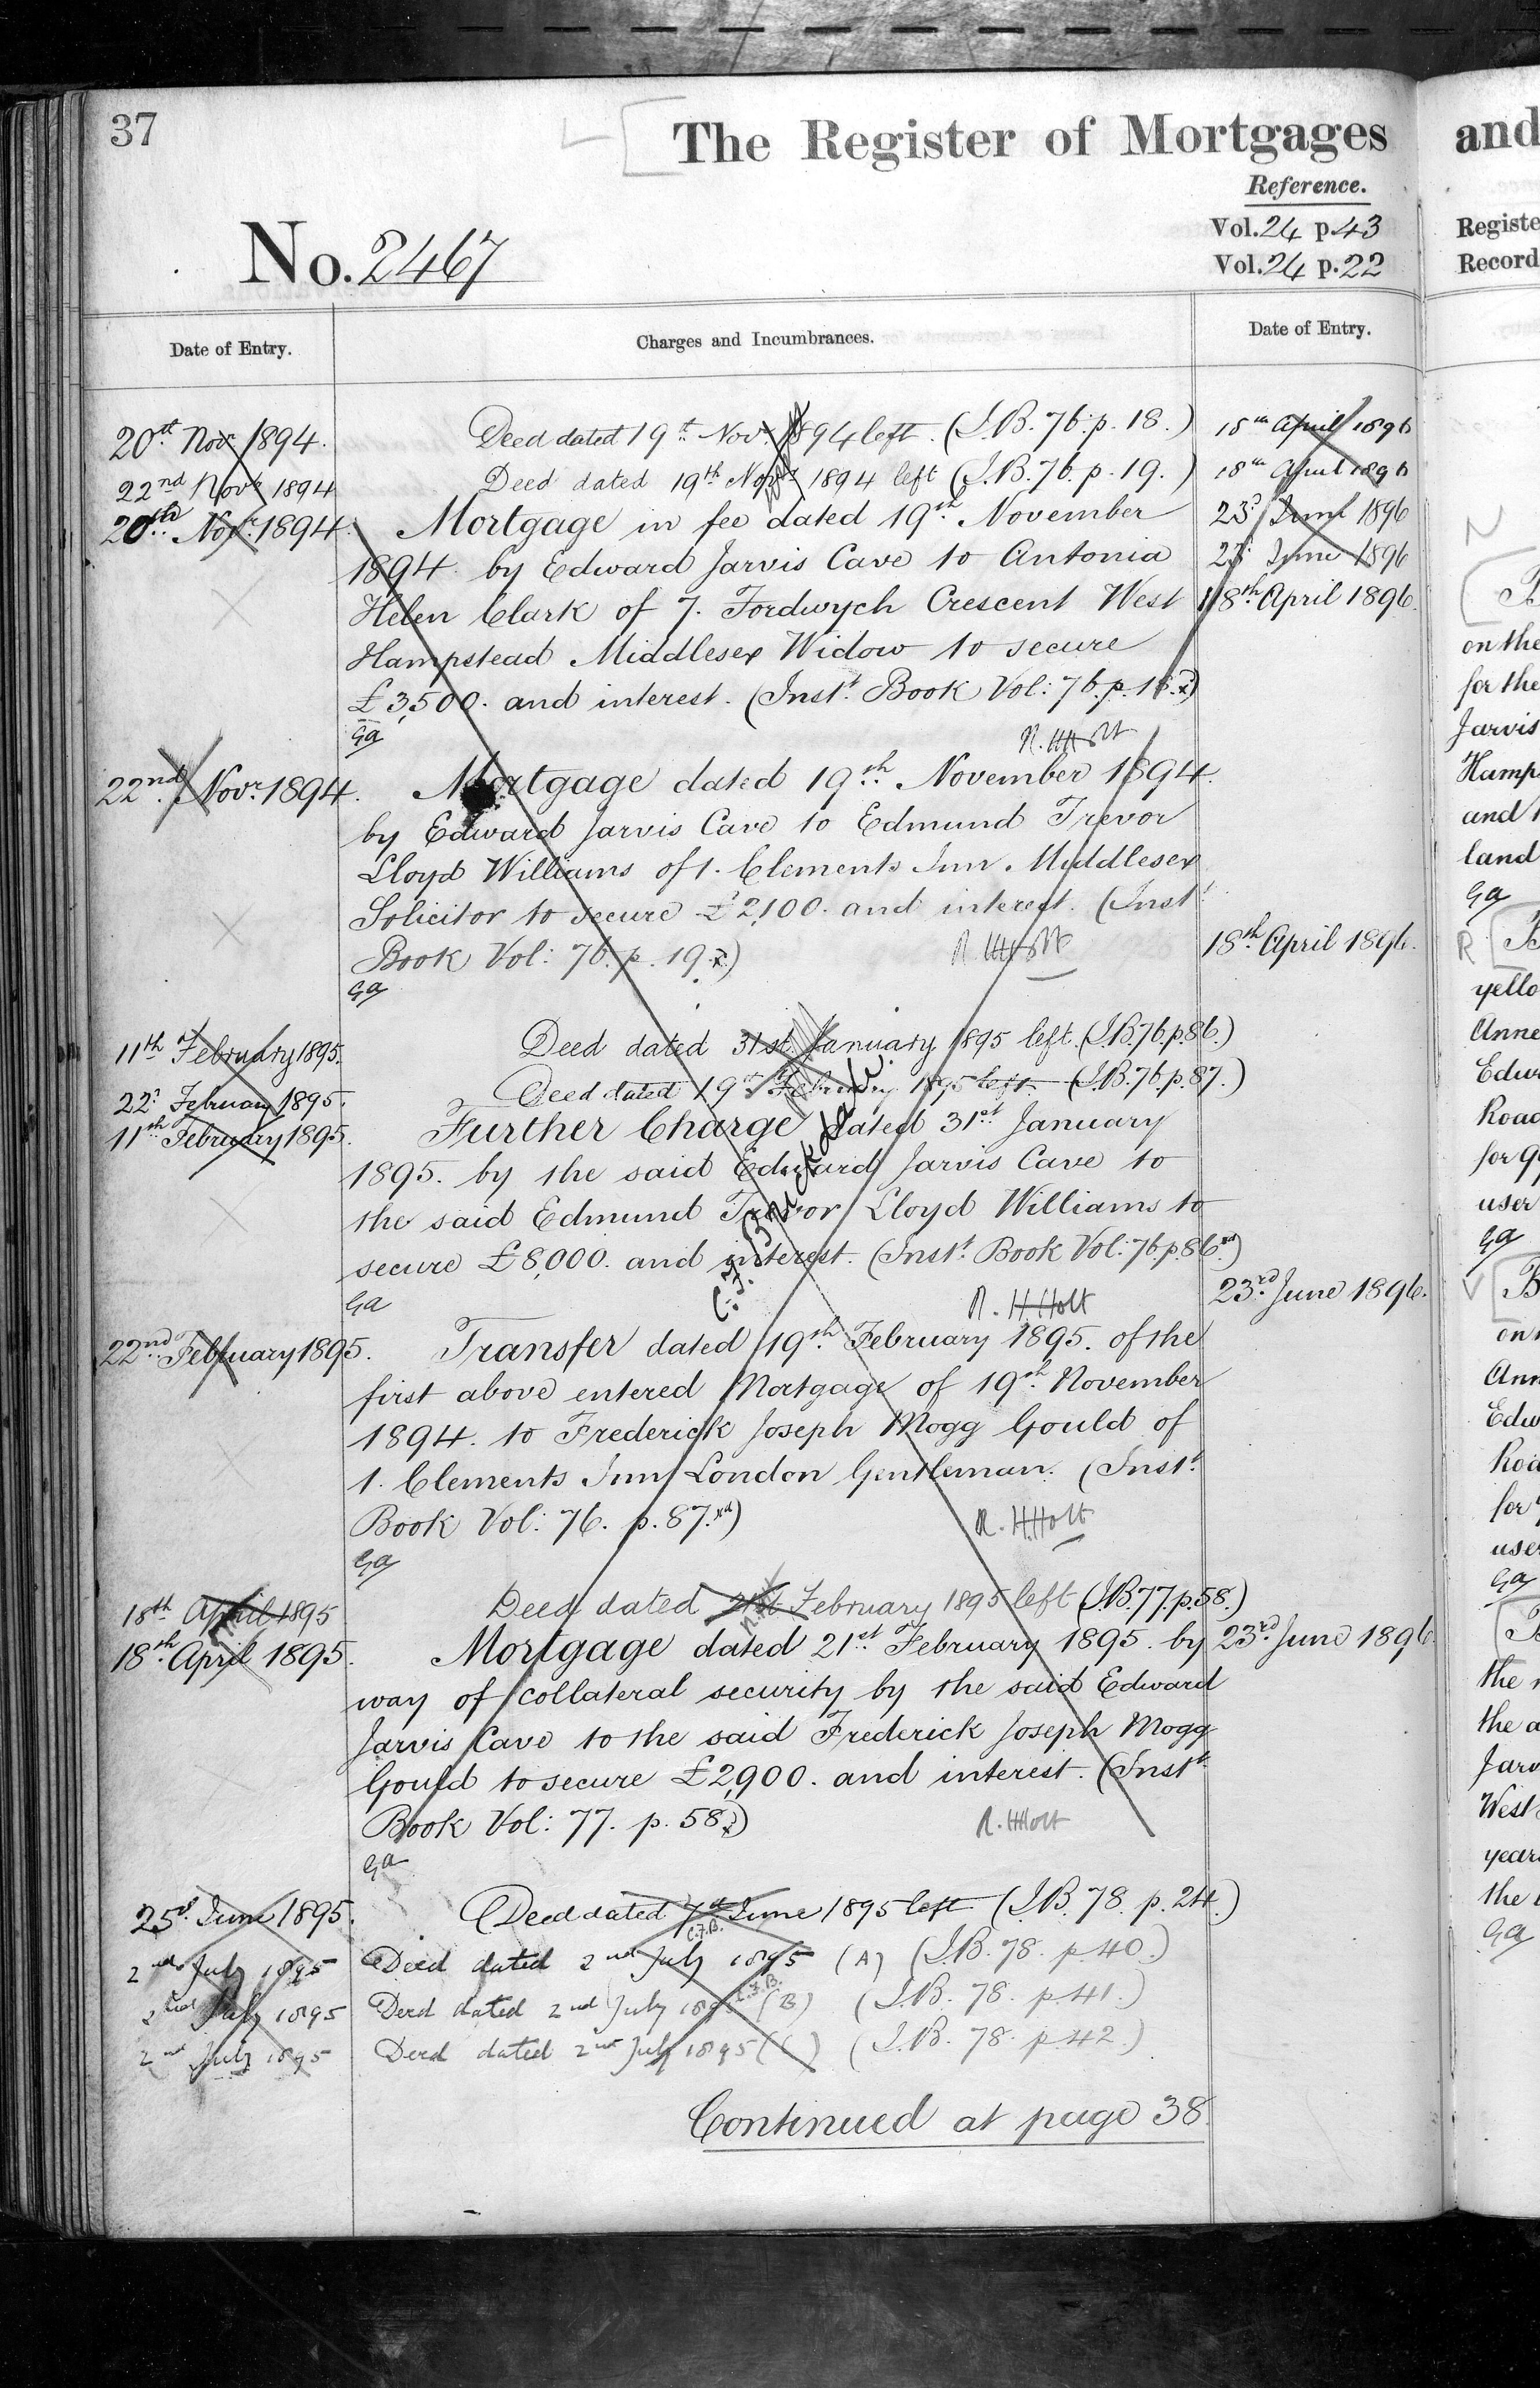 37
The Register of Mortgages
Reference.
Vol. 24 p. 43
Vol. 24 p. 22
No. 2467
Date of Entry.
Charges and Incumbrances.
Date of Entry.
20th Novr 1894. Deed dated 19th Novr 1894 left. (I.B. 76. p. 18.) 18th April 1896
22nd Novr 1894 Deed dated 19th Novr 1894 left (I.B. 76. p. 19.) 18th April 1896
20th Novr 1894. Mortgage in fee dated 19th November 23rd June 1896
1894. by Edward Jarvis Cave to Antonia 23rd June 1896
Helen Clark of 7. Fordwych Crescent West 18th April 1896.
Hampstead Middlesex Widow to secure
£3,500. and interest. (Instt Book Vol: 76. p. 18.)
Ga
R. H Holt
22nd Novr 1894. Mortgage dated 19th November 1894.
by Edward Jarvis Cave to Edmund Trevor
Lloyd Williams of 1. Clements Inn. Middlesex
Solicitor to secure £2,100. and interest. (Instt
Book Vol: 76. p. 19.) R. H Holt 18th April 1896.
Ga
11th February 1895. Deed dated 31st January 1895 left. (I.B. 76. p. 86.)
22nd February 1895. Deed dated 19th February 1895 left. (I.B. 76. p. 87.)
11th February 1895. Further Charge dated 31st January
1895. by the said Edward Jarvis Cave to
the said Edmund Trevor Lloyd Williams to
secure £8,000. and interest. (Instt Book Vol: 76 p 86.)
Ga R. H Holt 23rd June 1896.
22nd February 1895. Transfer dated 19th February 1895. of the
first above entered Mortgage of 19th November
1894. to Frederick Joseph Mogg Gould of
1. Clements Inn London Gentleman. (Instt
Book Vol: 76. p. 87.) R. H Holt
Ga
18th April 1895 Deed dated 21st February 1895 left (I.B. 77. p. 58.)
18th April 1895. Mortgage dated 21st February 1895. by 23rd June 1896.
way of collateral security by the said Edward
Jarvis Cave to the said Frederick Joseph Mogg
Gould to secure £2,900. and interest. (Instt
Book Vol: 77. p. 58.) R. H Holt
Ga
25th June 1895. Deed dated 7th June 1895 left (I.B. 78. p. 24.)
C.J.B.
2nd July 1895 Deed dated 2nd July 1895 (A) (I.B. 78. p. 40.)
2nd July 1895 Deed dated 2nd July 1895 (B) (I.B. 78. p. 41.)
C.J.B.
2nd July 1895 Deed dated 2nd July 1895 (C) (I.B. 78. p. 42.)
Continued at page 38.
and
Registe
Record
on the
for the
Jarvis
Hamp
and
land
Ga
R
yello
Anne
Edw
Road
for
user
Ga
on
Ann
Edw
Roa
for
use
Ga
the
the a
Jarv
West
years
the
Ga